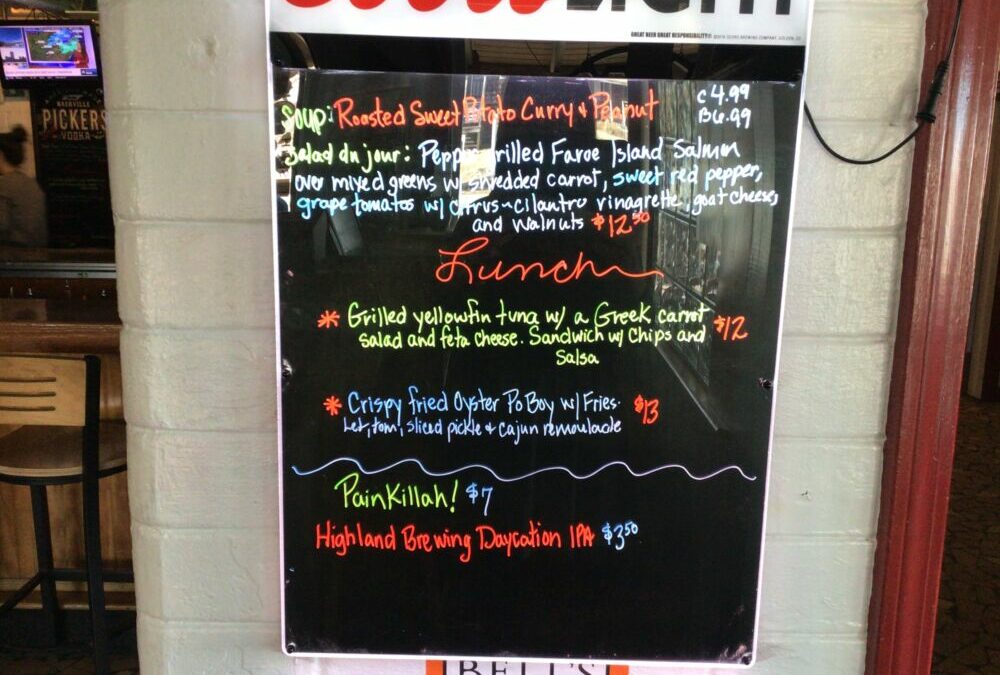 GREAT BEER GREAT RESPONSIBILITY®
NASHVILLE
PICKERS
VODKA
Soup: Roasted Sweet Potato Curry & Peanut
C 4.99
B 6.99
Salad du jour: Pepper grilled Faroe Island Salmon
over mixed greens w/ shredded carrot, sweet red pepper,
grape tomatos w/ citrus-cilantro vinagrette, goat cheese,
and walnuts $12.50
Lunch
* Grilled yellowfin tuna w/ a Greek carrot
salad and feta cheese. Sandwich w/ Chips and $12
Salsa
* Crispy fried Oyster Po Boy w/ Fries. $13
Let, tom, sliced pickle & cajun remoulade
PainKillah! $7
Highland Brewing Daycation IPA $3.50
BELL'S